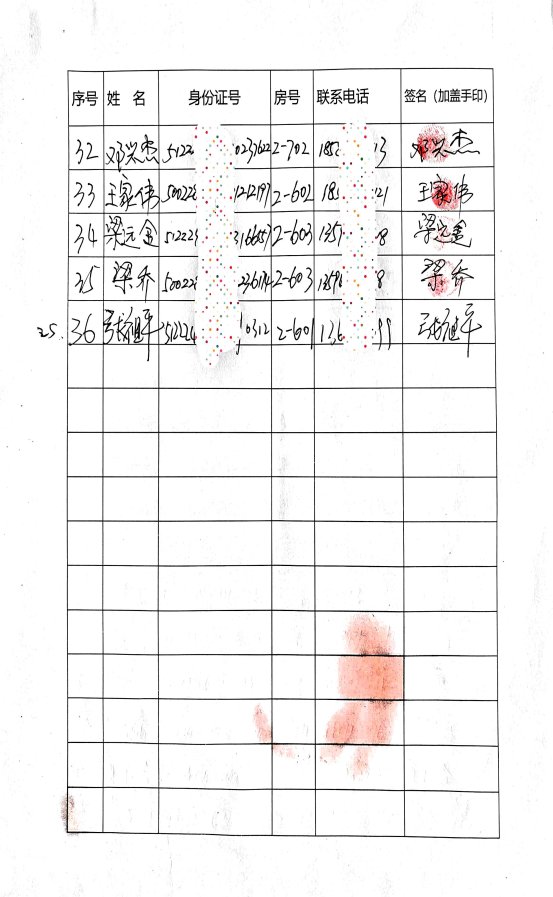 序号 姓 名 身份证号 房号 联系电话 签名（加盖手印）
32 邓兴杰 5122 0237622 2-702 185 13 邓兴杰
33 王家伟 500228 1212197 2-602 18 21 王家伟
34 梁远金 512229 316657 2-603 1357 8 梁远金
35 梁乔 500228 236174 2-603 13598 8 梁乔
25. 36 512224 10312 2-601 136 99